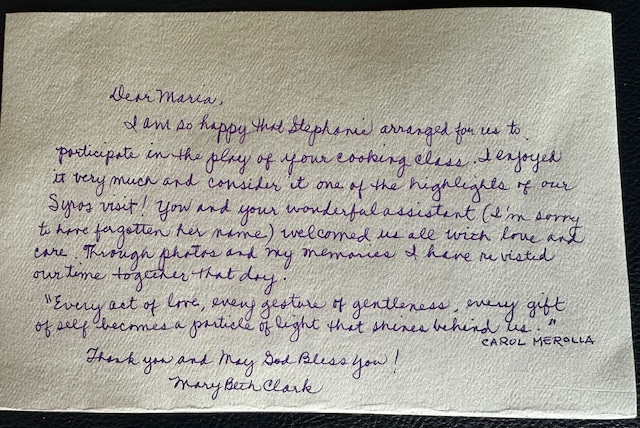 Dear Maria,
I am so happy that Stephanie arranged for us to
participate in the play of your cooking class. I enjoyed
it very much and consider it one of the highlights of our
Syros visit! You and your wonderful assistant (I'm sorry
to have forgotten her name) welcomed us all with love and
care. Through photos and my memories I have revisted
our time together that day.
"Every act of love, every gesture of gentleness, every gift
of self becomes a particle of light that shines behind us."
CAROL MEROLLA
Thank you and May God Bless You!
Mary Beth Clark